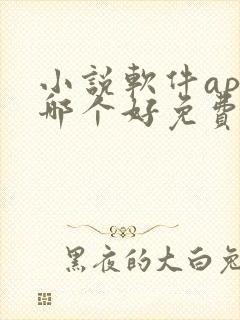 小説軟件ap
哪个好免費
黑夜的大白兔